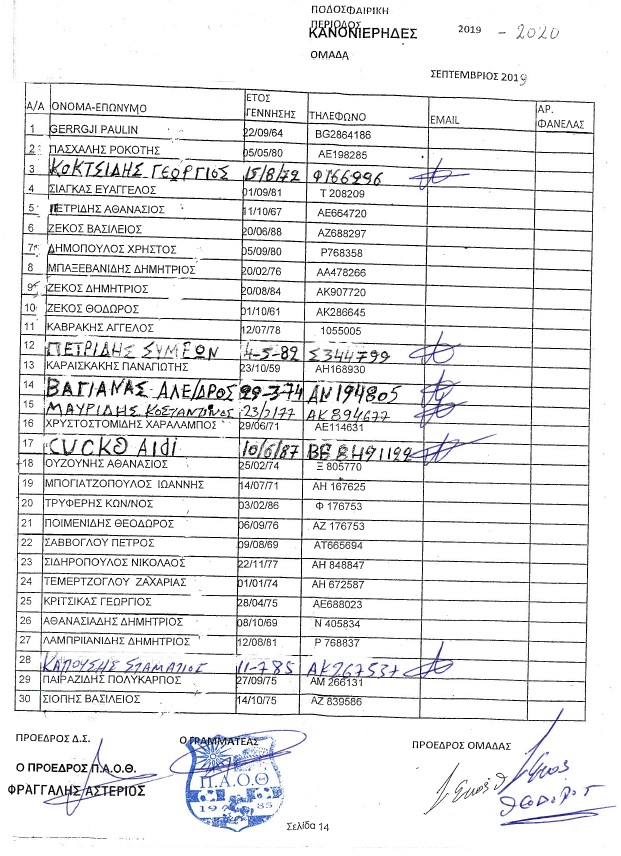 ΠΟΔΟΣΦΑΙΡΙΚΗ
ΠΕΡΙΟΔΟΣ 2019 - 2020
ΚΑΝΟΝΙΕΡΗΔΕΣ
ΟΜΑΔΑ
ΣΕΠΤΕΜΒΡΙΟΣ 2019
Α/Α ΟΝΟΜΑ-ΕΠΩΝΥΜΟ ΕΤΟΣ ΓΕΝΝΗΣΗΣ ΤΗΛΕΦΩΝΟ EMAIL ΑΡ. ΦΑΝΕΛΑΣ
1 GERRGJI PAULIN 22/09/64 BG2864186
2 ΠΑΣΧΑΛΗΣ ΡΟΚΟΤΗΣ 05/05/80 ΑΕ198285
3 ΚΟΚΤΣΙΔΗΣ ΓΕΩΡΓΙΟΣ 15/8/72 Φ166296
4 ΣΙΑΓΚΑΣ ΕΥΑΓΓΕΛΟΣ 01/09/81 Τ 208209
5 ΠΕΤΡΙΔΗΣ ΑΘΑΝΑΣΙΟΣ 11/10/67 ΑΕ664720
6 ΖΕΚΟΣ ΒΑΣΙΛΕΙΟΣ 20/06/88 ΑΖ688297
7 ΔΗΜΟΠΟΥΛΟΣ ΧΡΗΣΤΟΣ 05/09/80 Ρ768358
8 ΜΠΑΞΕΒΑΝΙΔΗΣ ΔΗΜΗΤΡΙΟΣ 20/02/76 ΑΑ478266
9 ΖΕΚΟΣ ΔΗΜΗΤΡΙΟΣ 20/08/84 ΑΚ907720
10 ΖΕΚΟΣ ΘΟΔΩΡΟΣ 01/10/61 ΑΚ286645
11 ΚΑΒΡΑΚΗΣ ΑΓΓΕΛΟΣ 12/07/78 1055005
12 ΠΕΤΡΙΔΗΣ ΣΥΜΕΩΝ 4-5-82 Σ344799
13 ΚΑΡΑΙΣΚΑΚΗΣ ΠΑΝΑΓΙΩΤΗΣ 23/10/59 ΑΗ168930
14 ΒΑΓΙΑΝΑΣ ΑΛΕΔΡΟΣ 29-3-74 ΑΝ194805
15 ΜΑΥΡΙΔΗΣ ΚΩΣΤΑΝΤΙΝΟΣ 23/2/77 ΑΚ894677
16 ΧΡΥΣΤΟΣΤΟΜΙΔΗΣ ΧΑΡΑΛΑΜΠΟΣ 29/06/71 ΑΕ114631
17 CUCKO Aldi 10/6/87 BE8491122
18 ΟΥΖΟΥΝΗΣ ΑΘΑΝΑΣΙΟΣ 25/02/74 Ξ 805770
19 ΜΠΟΓΙΑΤΖΟΠΟΥΛΟΣ ΙΩΑΝΝΗΣ 14/07/71 ΑΗ 167625
20 ΤΡΥΦΕΡΗΣ ΚΩΝ/ΝΟΣ 03/02/86 Φ 176753
21 ΠΟΙΜΕΝΙΔΗΣ ΘΕΟΔΩΡΟΣ 06/09/76 ΑΖ 176753
22 ΣΑΒΒΟΓΛΟΥ ΠΕΤΡΟΣ 09/08/69 ΑΤ665694
23 ΣΙΔΗΡΟΠΟΥΛΟΣ ΝΙΚΟΛΑΟΣ 22/11/77 ΑΗ 848847
24 ΤΕΜΕΡΤΖΟΓΛΟΥ ΖΑΧΑΡΙΑΣ 01/01/74 ΑΗ 672587
25 ΚΡΙΤΣΙΚΑΣ ΓΕΩΡΓΙΟΣ 28/04/75 ΑΕ688023
26 ΑΘΑΝΑΣΙΑΔΗΣ ΔΗΜΗΤΡΙΟΣ 08/10/69 Ν 405834
27 ΛΑΜΠΡΙΑΝΙΔΗΣ ΔΗΜΗΤΡΙΟΣ 12/08/81 Ρ 768837
28 ΚΑΠΟΥΣΗΣ ΣΤΑΜΑΤΙΟΣ 11-785 ΑΚ267537
29 ΠΑΙΡΑΖΙΔΗΣ ΠΟΛΥΚΑΡΠΟΣ 27/09/75 ΑΜ 266131
30 ΣΙΟΠΗΣ ΒΑΣΙΛΕΙΟΣ 14/10/75 ΑΖ 839586
ΠΡΟΕΔΡΟΣ Δ.Σ. Ο ΓΡΑΜΜΑΤΕΑΣ ΠΡΟΕΔΡΟΣ ΟΜΑΔΑΣ
Ο ΠΡΟΕΔΡΟΣ Π.Α.Ο.Θ.
ΦΡΑΓΓΑΛΗΣ ΑΣΤΕΡΙΟΣ
Π.Α.Ο.Θ
1985
Σελίδα 14